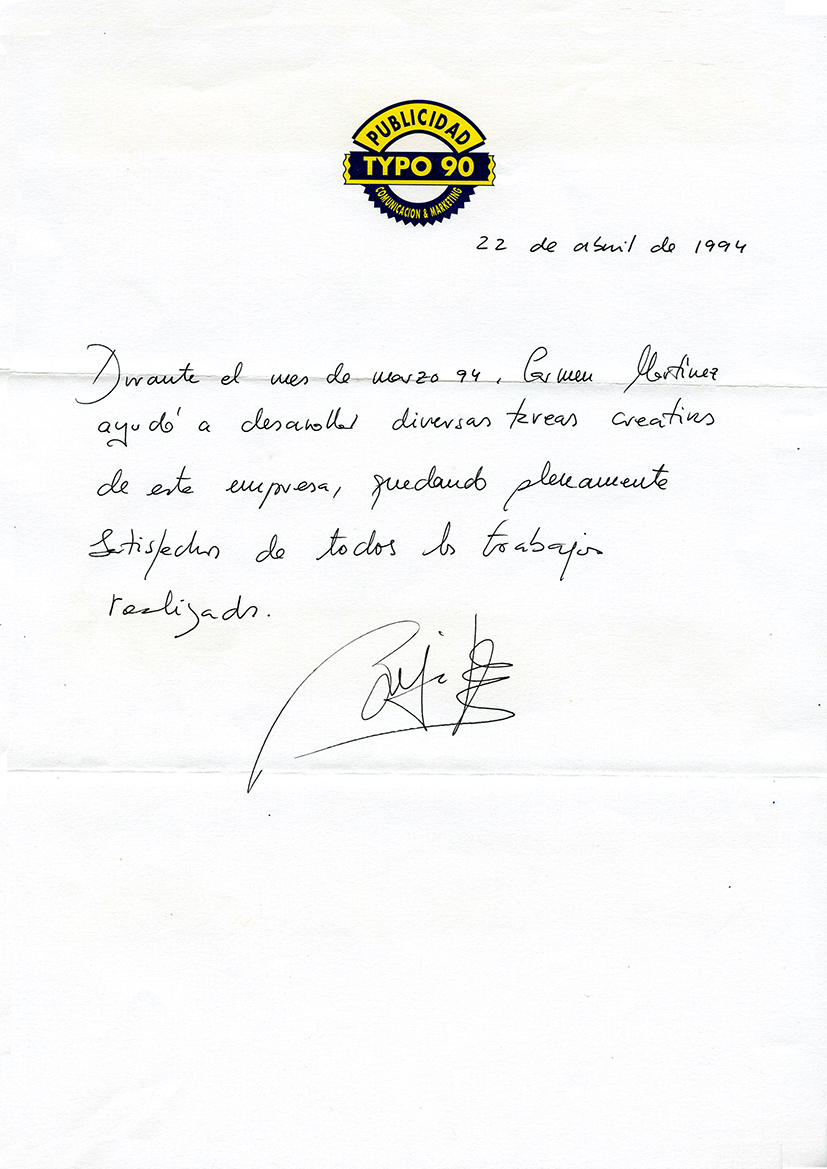 PUBLICIDAD
TYPO 90
COMUNICACION & MARKETING
22 de abril de 1994
Durante el mes de marzo 94, Carmen Martínez
ayudó a desarrollar diversas tareas creativas
de esta empresa, quedando plenamente
satisfechos de todos los trabajos
realizados.